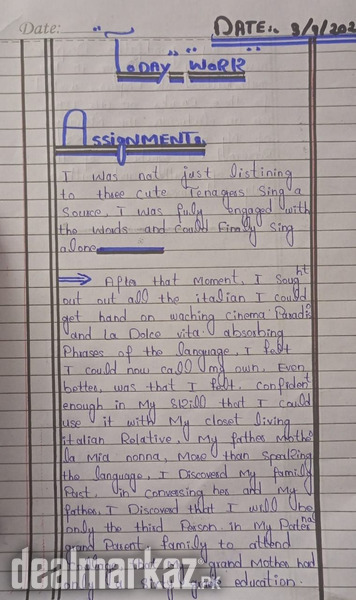 Date:
DATE:. 3/9/202
"TODAY" "WORK"
ASSIGNMENT:.
I was not just listining
to three cute Tenagers Sing a
Source, I was fuly engaged with
the words and could finally sing
alone
⇒ After that Moment, I Sought
out out all the italian I could
get hand on waching cinema Paradis
and La Dolce vita. absorbing
Phrases of the language, I felt
I could now call my own. Even
better, was that I felt. Confident
enough in My Skill that I could
use it with My closet living
italian Relative, My father Mothe
la Mia nonna, More than Speaking
the language, I Discoverd My family
Past, in conversing her and My
father, I Discoverd that I will be
only the third Person in My Paternal
grand Parent family to attend
that grand Mother had
education.
dealmarkaz.pk